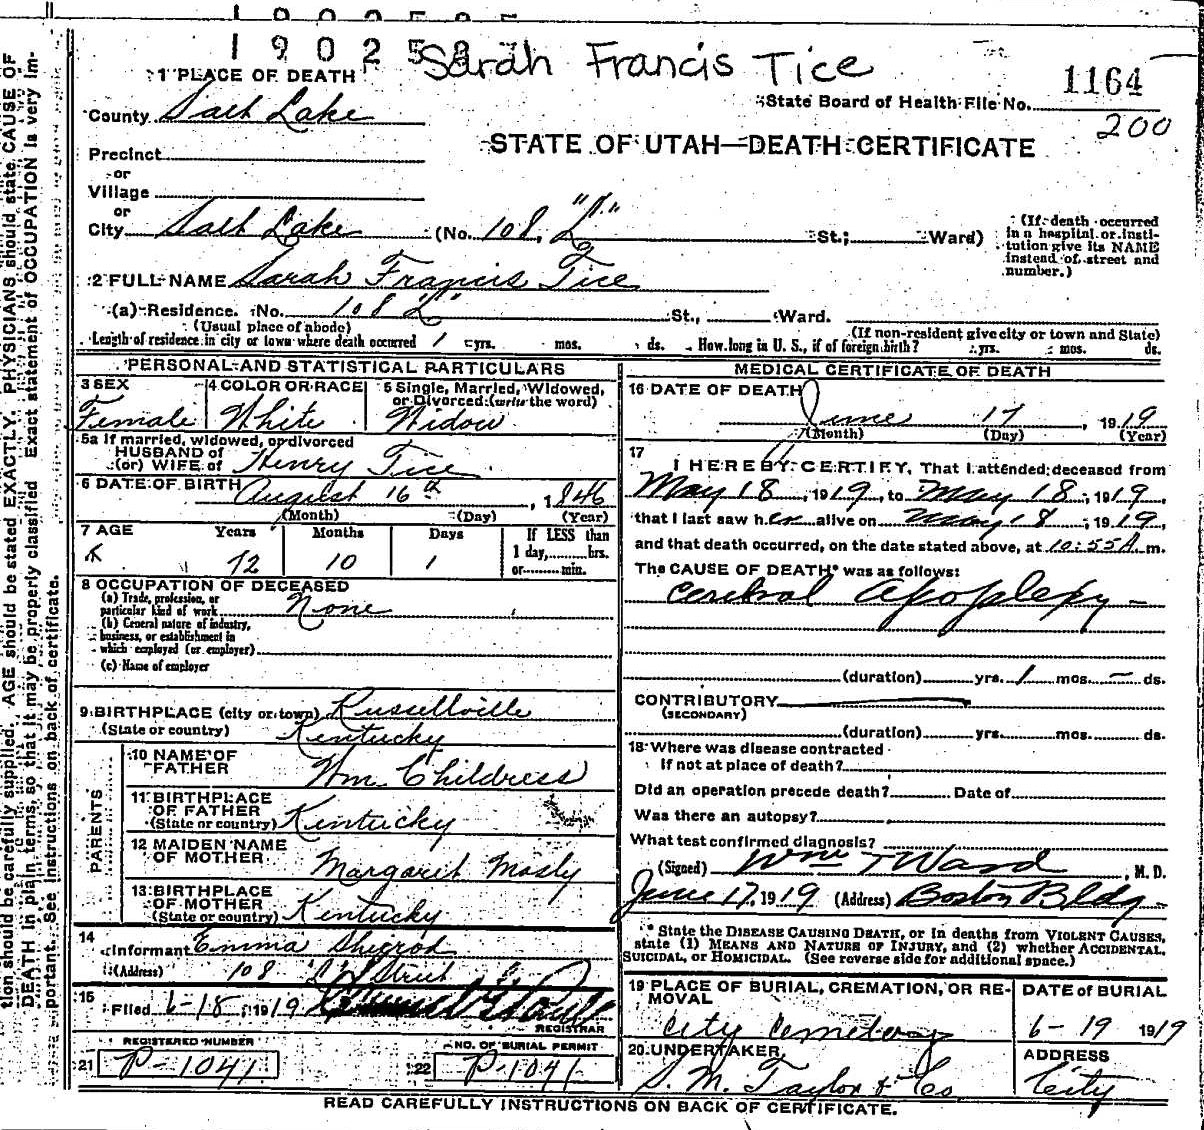 190258
Sarah Francis Tice
1164
State Board of Health File No.
200
STATE OF UTAH—DEATH CERTIFICATE
1 PLACE OF DEATH
County Salt Lake
Precinct
or
Village
or
City Salt Lake (No. 108 "L" St.; Ward)
(If death occurred in a hospital or institution give its NAME instead of street and number.)
2 FULL NAME Sarah Francis Tice
(a) Residence. No. 108 "L" St., Ward.
(Usual place of abode) (If non-resident give city or town and State)
Length of residence in city or town where death occurred 1 yrs. mos. ds. How long in U. S., if of foreign birth? yrs. mos. ds.
PERSONAL AND STATISTICAL PARTICULARS
3 SEX
Female
4 COLOR OR RACE
White
5 Single, Married, Widowed,
or Divorced (write the word)
Widow
5a If married, widowed, or divorced
HUSBAND of
(or) WIFE of Henry Tice
6 DATE OF BIRTH August 16th, 1846
(Month) (Day) (Year)
7 AGE Years Months Days If LESS than
1 day, hrs.
or min.
72 10 1
8 OCCUPATION OF DECEASED
(a) Trade, profession, or
particular kind of work None
(b) General nature of industry,
business, or establishment in
which employed (or employer)
(c) Name of employer
9 BIRTHPLACE (city or town) Russellville
(State or country) Kentucky
PARENTS
10 NAME OF
FATHER Wm. Childress
11 BIRTHPLACE
OF FATHER
(State or country) Kentucky
12 MAIDEN NAME
OF MOTHER Margaret Mosly
13 BIRTHPLACE
OF MOTHER
(State or country) Kentucky
14
Informant Emma Sherrod
(Address) 108 Street
15
Filed 6-18, 1919
REGISTRAR
REGISTERED NUMBER
21 P-1041
NO. OF BURIAL PERMIT
22 P-1041
MEDICAL CERTIFICATE OF DEATH
16 DATE OF DEATH
June 17, 1919
(Month) (Day) (Year)
17
I HEREBY CERTIFY, That I attended deceased from
May 18, 1919, to May 18, 1919,
that I last saw her alive on May 18, 1919,
and that death occurred, on the date stated above, at 10:55 A. m.
The CAUSE OF DEATH* was as follows:
Cerebral Apoplexy —
(duration) yrs. 1 mos. — ds.
CONTRIBUTORY
(SECONDARY)
(duration) yrs. mos. ds.
18 Where was disease contracted
If not at place of death?
Did an operation precede death? Date of
Was there an autopsy?
What test confirmed diagnosis?
(Signed) Wm T Ward, M. D.
June 17, 1919 (Address) Boston Bldg
* State the DISEASE CAUSING DEATH, or in deaths from VIOLENT CAUSES,
state (1) MEANS AND NATURE OF INJURY, and (2) whether ACCIDENTAL,
SUICIDAL, or HOMICIDAL. (See reverse side for additional space.)
19 PLACE OF BURIAL, CREMATION, OR RE-
MOVAL
City Cemetery
DATE of BURIAL
6-19 1919
20 UNDERTAKER
S. M. Taylor & Co
ADDRESS
City
READ CAREFULLY INSTRUCTIONS ON BACK OF CERTIFICATE.
tion should be carefully supplied. AGE should be stated EXACTLY. PHYSICIANS should state CAUSE OF
DEATH in plain terms, so that it may be properly classified. Exact statement of OCCUPATION is very im-
portant. See instructions on back of certificate.